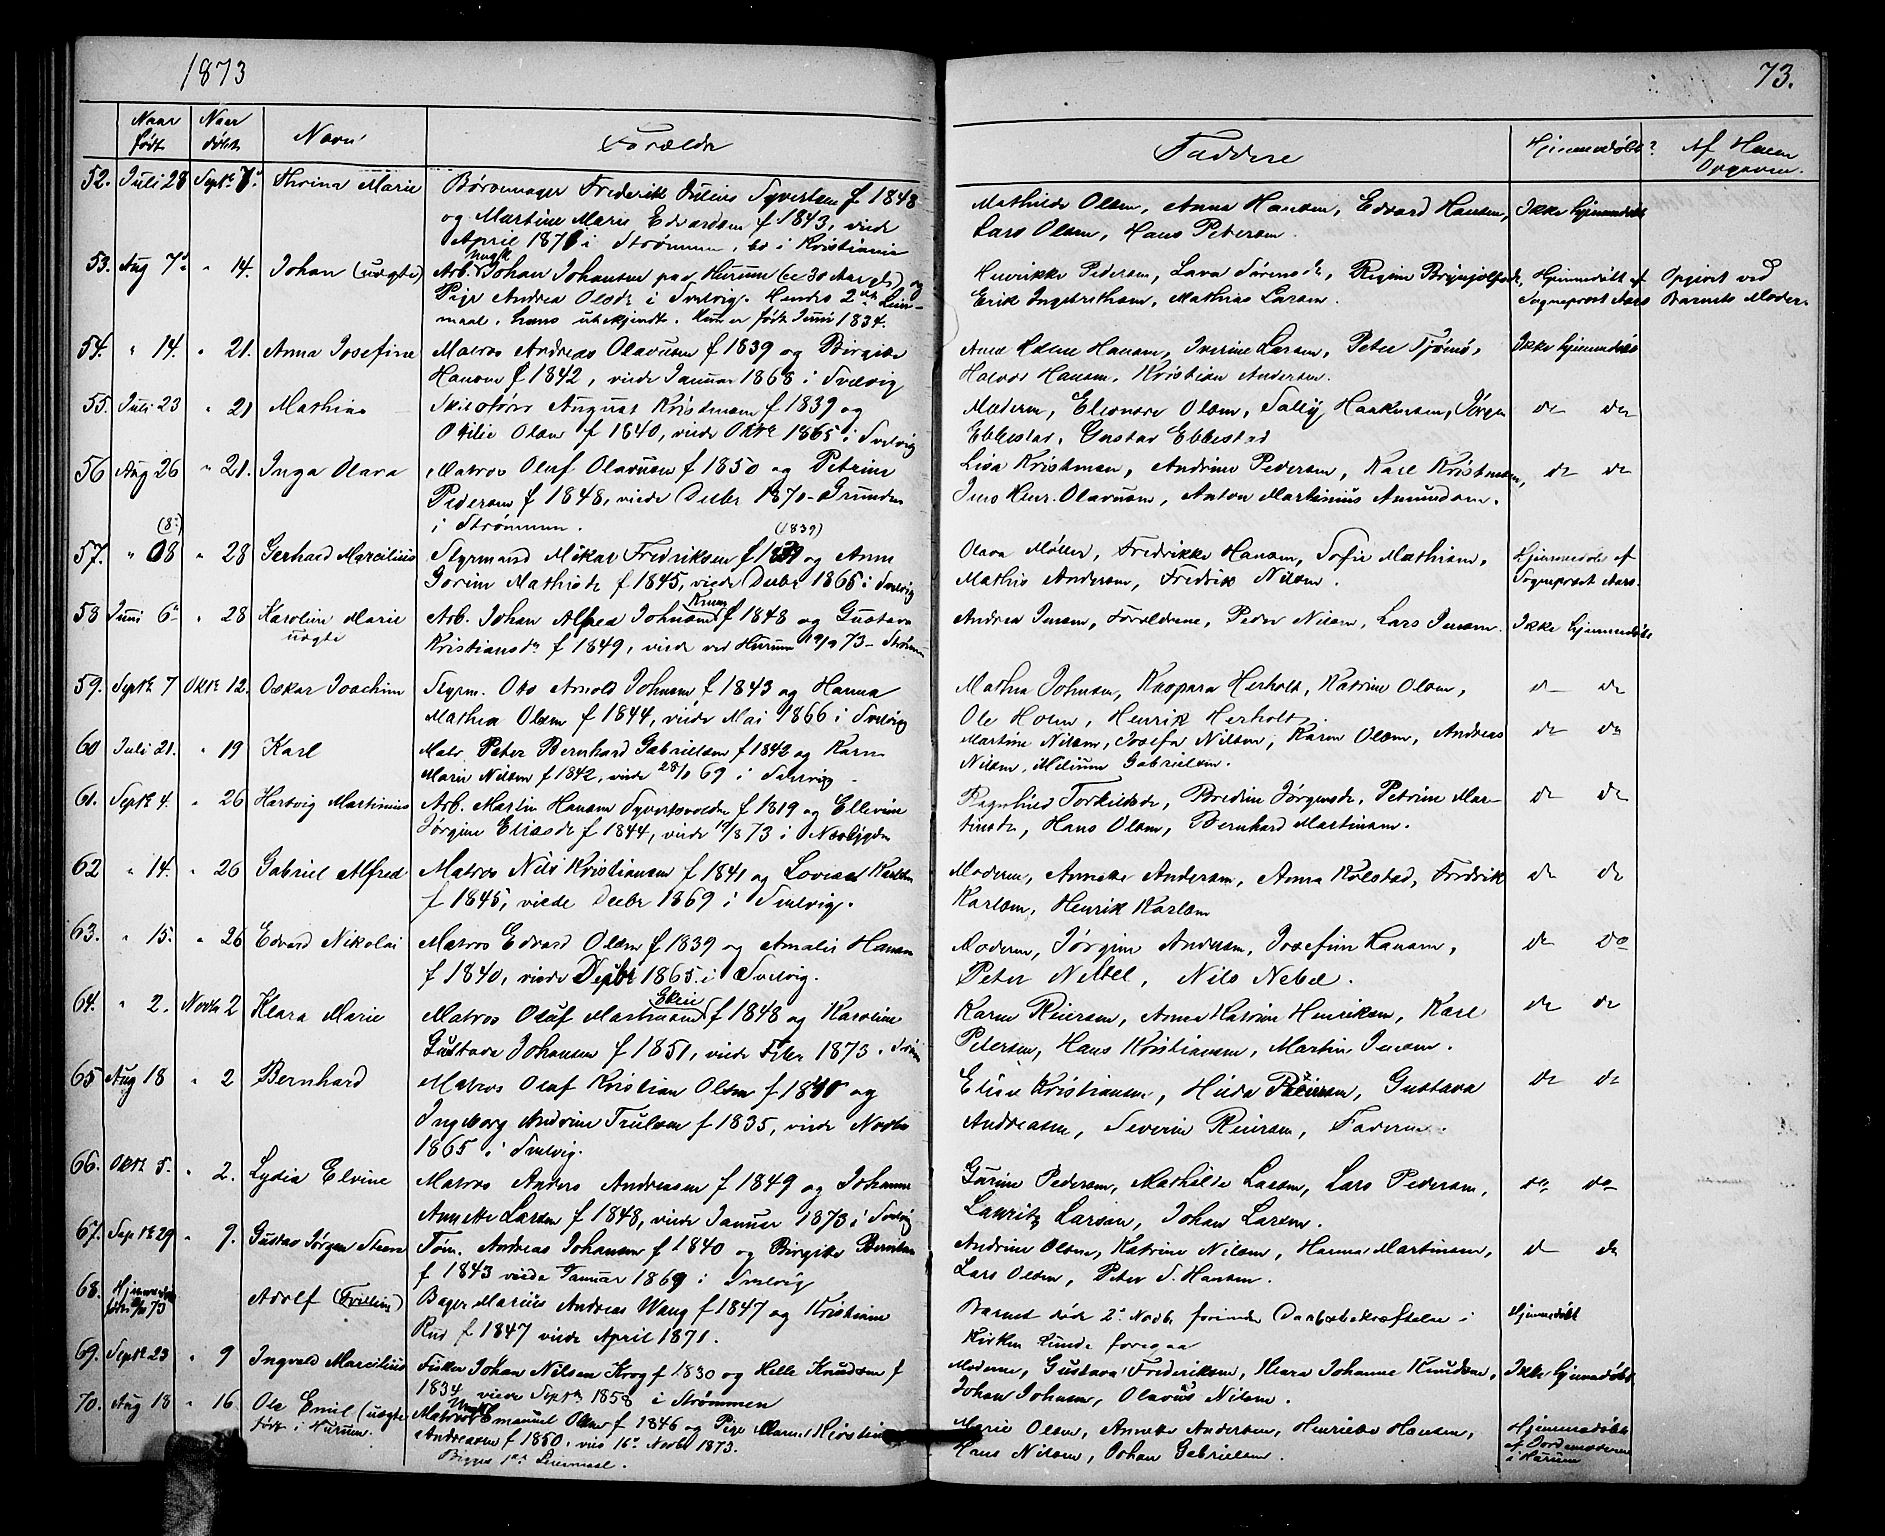 1873
73.
Naar født Naar døbt Navn Forældre Faddere Hjemmedøbt? Af Hvem Opgiven.
52. Juli 28 Septr 7. Thrina Marie Frederik Julius Syvertsen f 1848 Mathilde Olsen, Anna Hansen, Edvard Hansen, Ikke hjemmedøbt
og Martine Marie Edvardsen f 1843, viede Lars Olsen, Hans Petersen.
April 1871 i Strømmen, bo i Kristiania
53. Aug 7 " 14. Johan (uægte) Arb. Ungk Johan Johansen paa Hurum (ca 30 Aar gl.) og Henrikke Pedersen, Lava Sørensdr, Regine Brynjolfsdr, Hjemmedøbt af Opgivet ved
Pige Andrea Olsdr i Svelvig. Hendes 2det Leier- Erik Ingebrethsen, Mathias Larsen. Sogneprest Aars Barnets Moder
maal, hans ubekjendt. Hun er født Juni 1834.
54. " 14. " 21. Anna Josefine Matros Andreas Olavesen f 1839 og Birgite Hansen, Iverine Larsen, Peter Tjømø, Ikke hjemmedøbt
Hansen f 1842, viede Januar 1868 i Svelvig Halvor Hansen, Kristian Andersen.
55. Juli 23 " 21 Mathias August Kristensen f 1839 og Moderen, Eleonore Olsen, Sally Haakensen, Jørgen do do
Otilie Olsen f 1840, viede Oktr 1865 i Svelvig Ebbestad, Gustav Ebbestad
56 Aug 26 " 21. Inga Olava Matros Oluf Olavesen f 1850 og Petrine Lisa Kristensen, Andrine Pedersen, Karl Kristensen, do do
Pedersen f 1848, viede Decbr 1870 - Grunden Jens Henr. Olavesen, Anton Martinius Amundsen.
i Strømmen.
(8de) (1839)
57. " 08 " 28 Gerhard Marcilius Styrmand Mikal Fredriksen f 1839 og Anne Olava Møller, Fredrikke Hansen, Sofie Mathisen, Hjemmedøbt af
Gorine Mathisdr f 1845, viede Decbr 1865 i Svelvig Mathis Andersen, Fredrik Nilsen. Sogneprest Aars.
58 Juni 6 " 28 Karoline Marie Arb. Johan Alfred Johnsen f 1848 og Gustava Andrea Jensen, Forældrene, Peder Nilsen, Lars Jensen. Ikke hjemmedøbt
uægte Kristiansdr f 1849, viede ved Hurum 19/9 73 - Strømm
59. Septr 7 Oktr 12. Oskar Joachim Styrm. Otto Arnold Johnsen f 1843 og Hanna Mathea Johnsen, Kaspara Herholt, Katrine Olsen, do do
Mathea Olsen f 1844, viede Mai 1866 i Svelvig Ole Holm, Henrik Herholt.
60 Juli 21. " 19 Karl Matr. Peter Bernhard Gabrielsen f 1842 og Karen Martine Nilsen, Josefa Nilsen, Karen Olsen, Andreas do do
Marie Nilsen f 1842, viede 28/ 69 i Svelvig Nilsen, Gabrielsen.
61. Septr 4. " 26 Hartvig Martinius Arb. Martin Hansen f 1819 og Ellevine Ragnhild Torkildsdr, Bredine Jørgensdr, Petrine Mar- do do
Jørgine Eliasdr f 1844, viede 10/8 73 i tinsdr, Hans Olsen, Bernhard Martinsen.
62 " 14. " 26 Gabriel Alfred Matros Nils Kristiansen f 1841 og Lovise Karlsen Moderen, Annette Andersen, Anna Kolstad, Fredrik do do
f 1845, viede Decbr 1869 i Svelvig. Karlsen, Henrik Karlsen
63. " 15. " 26 Edvard Nikolai Matros Edvard Olsen f 1839 og Amalie Hansen Moderen, Jørgine Andersen, Josefine Hansen, do do
f 1840, viede Decbr 1865 i Svelvig. Peter Nebbel, Nils Nebel.
64. " 2. Novbr 2 Klara Marie Matros Oluf Martinsen f 1848 og Karoline Karen Reiersen, Anne Katrine Henriksen, Karl do do
Gustava Johansen f 1851, viede Febr 1873 i Petersen, Hans Kristiansen, Martin Jensen.
65 Aug 18 " 2 Bernhard Matros Oluf Kristian Olsen f 1840 og Elise Kristiansen, Hilda Reiersen, Gustava do do
Ingeborg Andrine Trulsen f 1835, viede Novbr Andreasen, Severin Reiersen, Faderen.
1865 i Svelvig.
66. Oktr 5. " 2. Lydia Elvine Matros Anders Andreasen f 1849 og Johanne Gurine Pedersen, Mathilde Larsen, Lars Pedersen, do do
Annette Larsen f 1848, viede Januar 1873 i Svelvig Lauritz Larsen, Johan Larsen.
67. Septr 29 " 9. Gustav Jørgen Steen Tøm. Andreas Johansen f 1840 og Birgitte Berntsen Andrine Olsen, Katrine Nilsen, Hanna Martinsen, do do
f 1843 viede Januar 1869 i Svelvig Lars Olsen, Peter S. Hansen.
68. Adolf (Tvilling) Bager Marius Andreas Wang f 1847 og Kristiane Barnet døde 2 Novbr forinden Daabsbekræftelse i Hjemmedøbt
Rud f 1847 viede April 1871. Kirken kunde foregaa
69. Septr 23 " 9 Ingvald Marcilius Fisker Johan Nilsen Krog f 1830 og Helle Knudsen f Moderen, Gustava Frederiksen, Klara Johanne Knudsen, Ikke hjemmedøbt.
1834, viede Septbr 1858 i Strømmen Johan Johnsen, Olavus Nilsen.
70. Aug 18 " 16. Ole Emil (uægte Matros Ungk. Emanuel Olsen f 1846 og Pige Maren Kirstine Marie Olsen, Annette Andersen, Henriette Hansen, Hjemmedøbt
født i Hurum. Andreasen f 1850, viet 16 Novbr 1873. Hans Nilsen, Johan Gabrielsen. af Jordemoderen
Begges 1ste Leiermaal. i Hurum